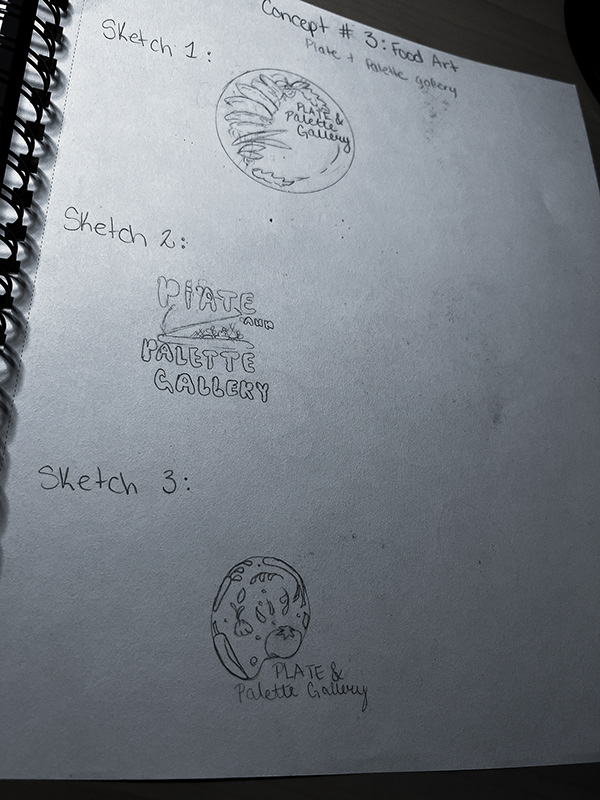 Concept # 3: Food Art
Plate + Palette gallery
Sketch 1:
PLATE &
Palette
Gallery
Sketch 2:
PlATE
AND
PALETTE
GALLERY
Sketch 3:
PLATE &
Palette Gallery